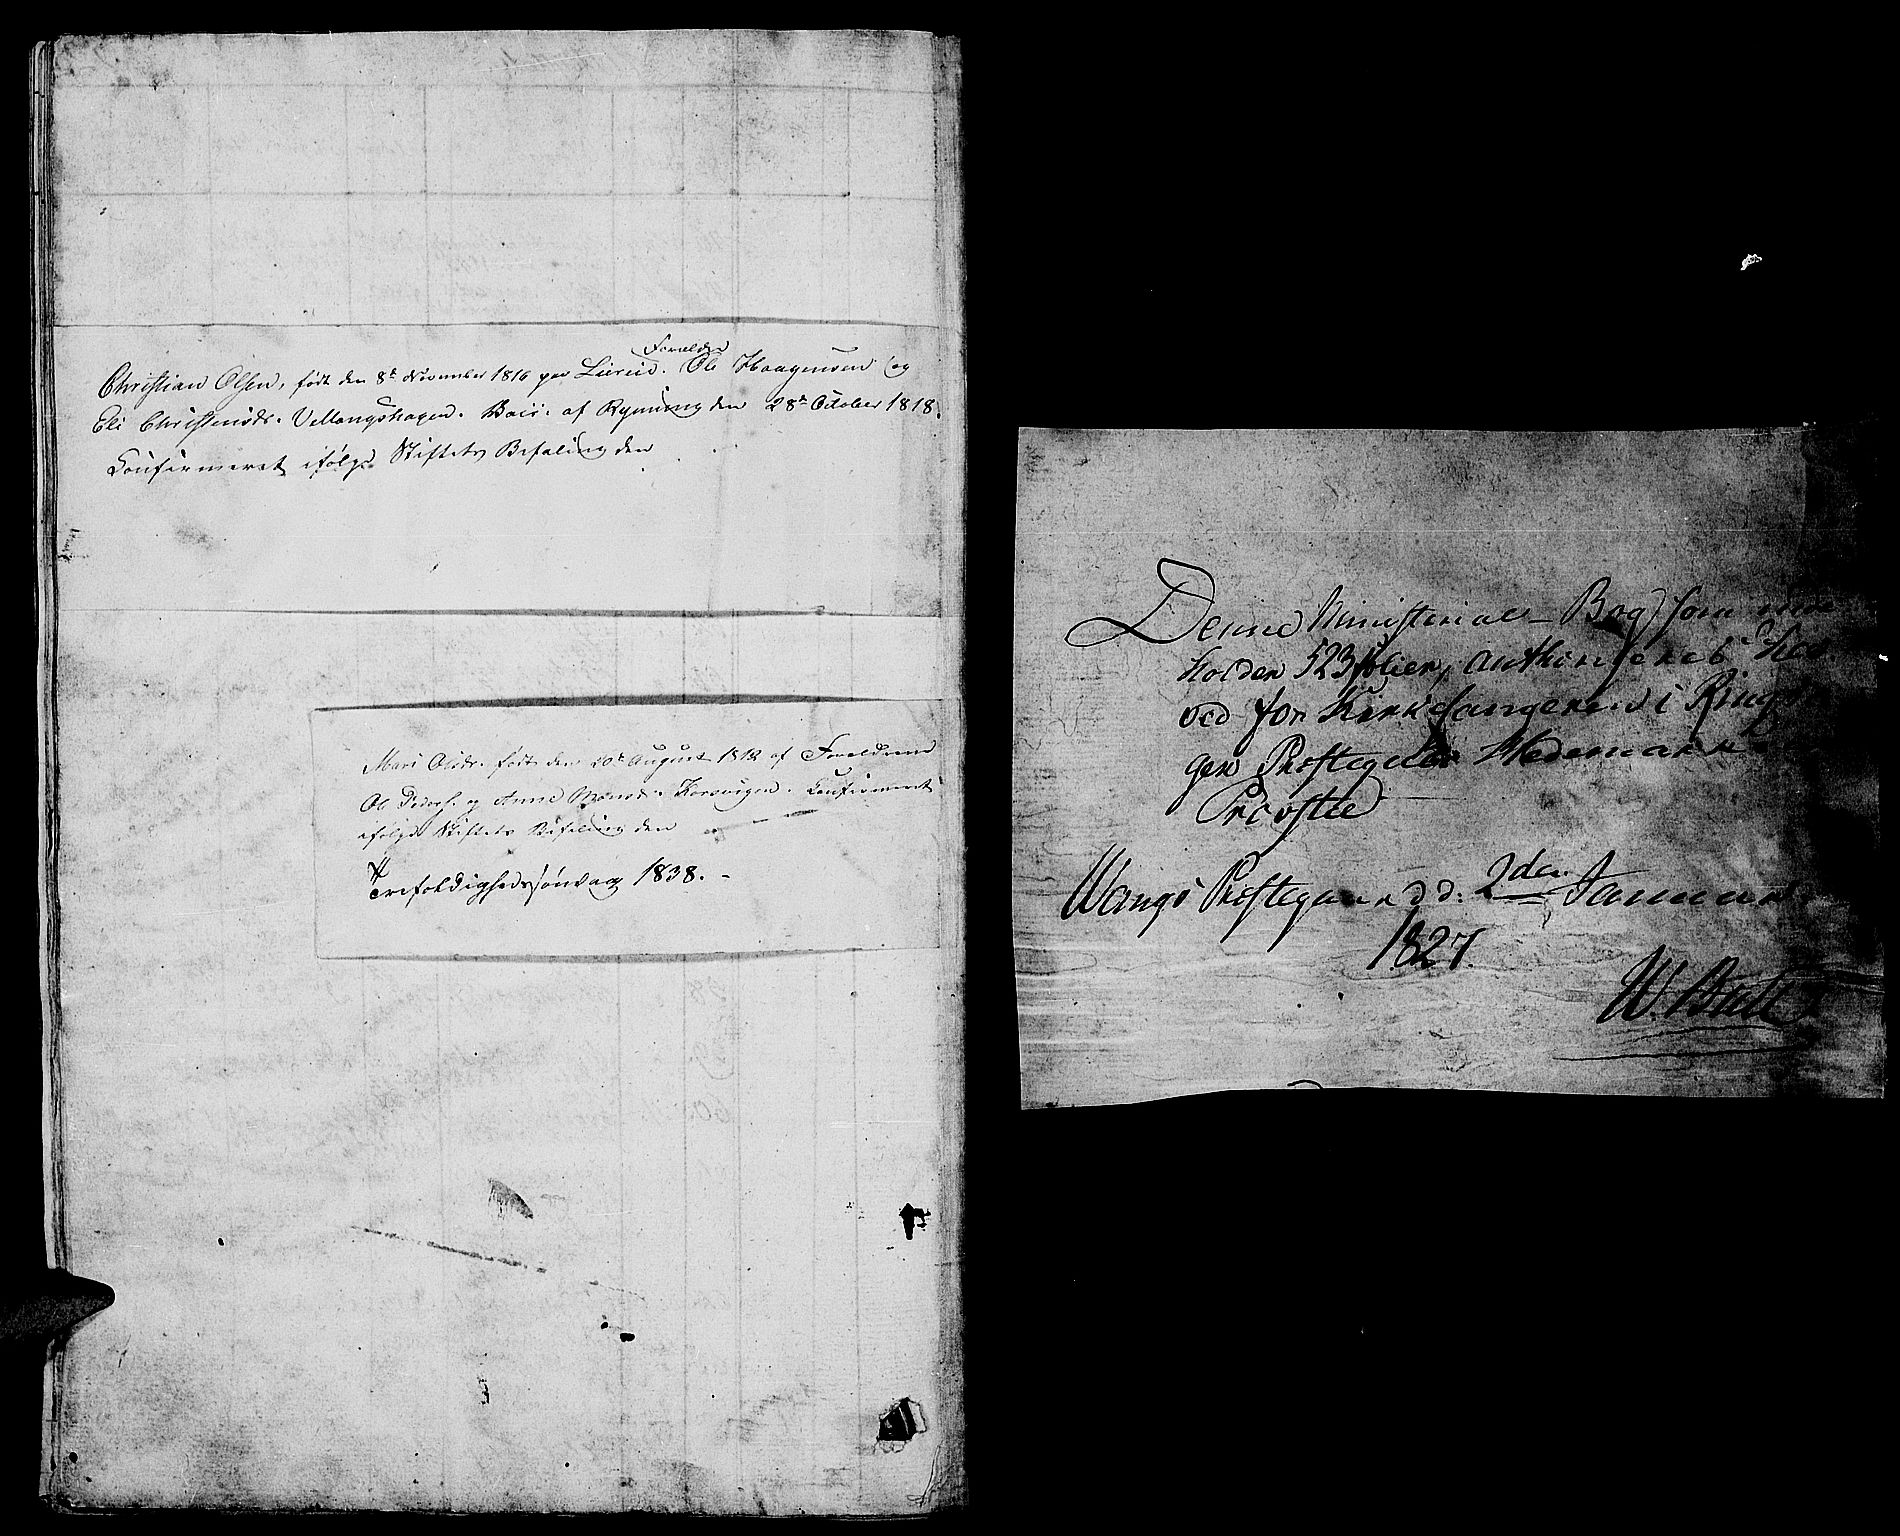 Forældre
Christian Olsen, født den 8de November 1816 paa Ole Haagensen og
Eli Christensdr. Vellangshagen. Vacc: af Rynning den 28de October 1818.
Confirmeret ifølge Stiftets Befaling den
Mari Olsdr. født den August 1818 af Forældrene
Ole Peders. og Anne Confirmeret
ifølge Stiftets Befaling den
Trefoldighedssøndag 1838.
Denne Ministerial-Bog som inde
holder 523 folier, authoriseres
ved for Kirkesangeren i Ringsa
ger Præstegield Hedemarkens
Provstie
Wangs Præstegaard d: 2den Januar
1827.
W. Bull